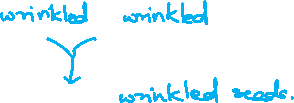 wrinkled wrinkled
wrinkled seeds.